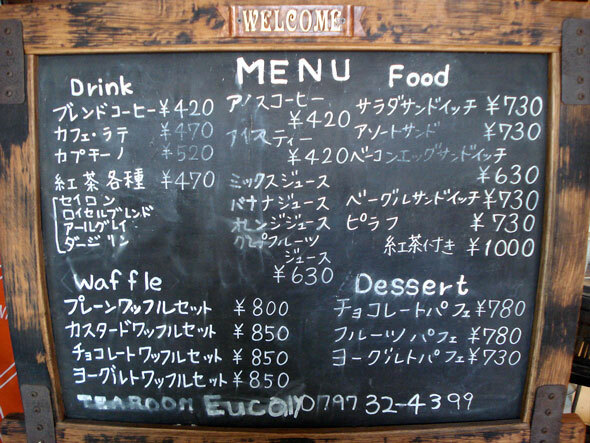 WELCOME
MENU
Drink
ブレンドコーヒー ¥420
カフェ・ラテ ¥470
カプチーノ ¥520
紅茶各種 ¥470
セイロン
ロイヤルブレンド
アールグレイ
ダージリン
アイスコーヒー
¥420
アイスティー
¥420
ミックスジュース
バナナジュース
オレンジジュース
グレープフルーツ
ジュース
¥630
Food
サラダサンドイッチ ¥730
アソートサンド ¥730
ベーコンエッグサンドイッチ
¥630
ベーグルサンドイッチ ¥730
ピラフ ¥730
紅茶付き ¥1000
Waffle
プレーンワッフルセット ¥800
カスタードワッフルセット ¥850
チョコレートワッフルセット ¥850
ヨーグルトワッフルセット ¥850
Dessert
チョコレートパフェ ¥780
フルーツパフェ ¥780
ヨーグルトパフェ ¥730
TEAROOM 0797 32-4399